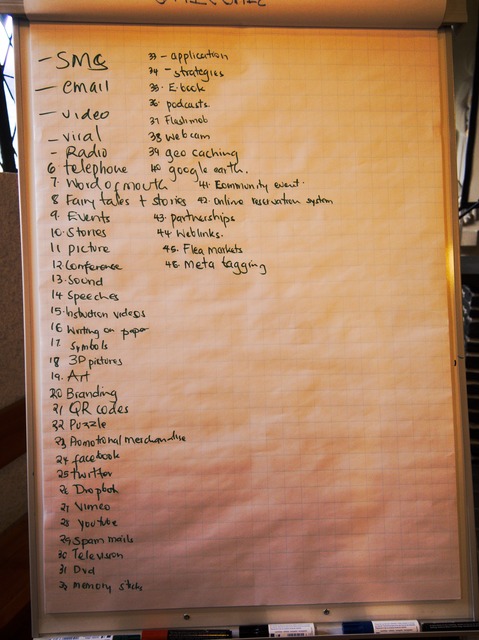 - SMS
- email
- video
- viral
- Radio
6. telephone
7. Word of mouth
8 Fairy tales + stories
9. Events
10. Stories
11 picture
12 Conference
13. Sound
14 Speeches
15. Instruction videos
16 Writing on paper
17. Symbols
18 3D pictures
19. Art
20 Branding
21 QR codes
22 Puzzle
23 Promotional merchandise
24 facebook
25 twitter
26 Dropbox
27 Vimeo
28 youtube
29 Spam mails
30 Television
31 Dvd
32 memory sticks
33 - application
34 - strategies
35. E-book
36 podcasts.
37 Flashmob
38 Web cam
39 geo caching
40 google earth.
41. Community event.
42. online reservation system
43. partnerships
44 Weblinks.
45. Flea markets
46. Meta tagging